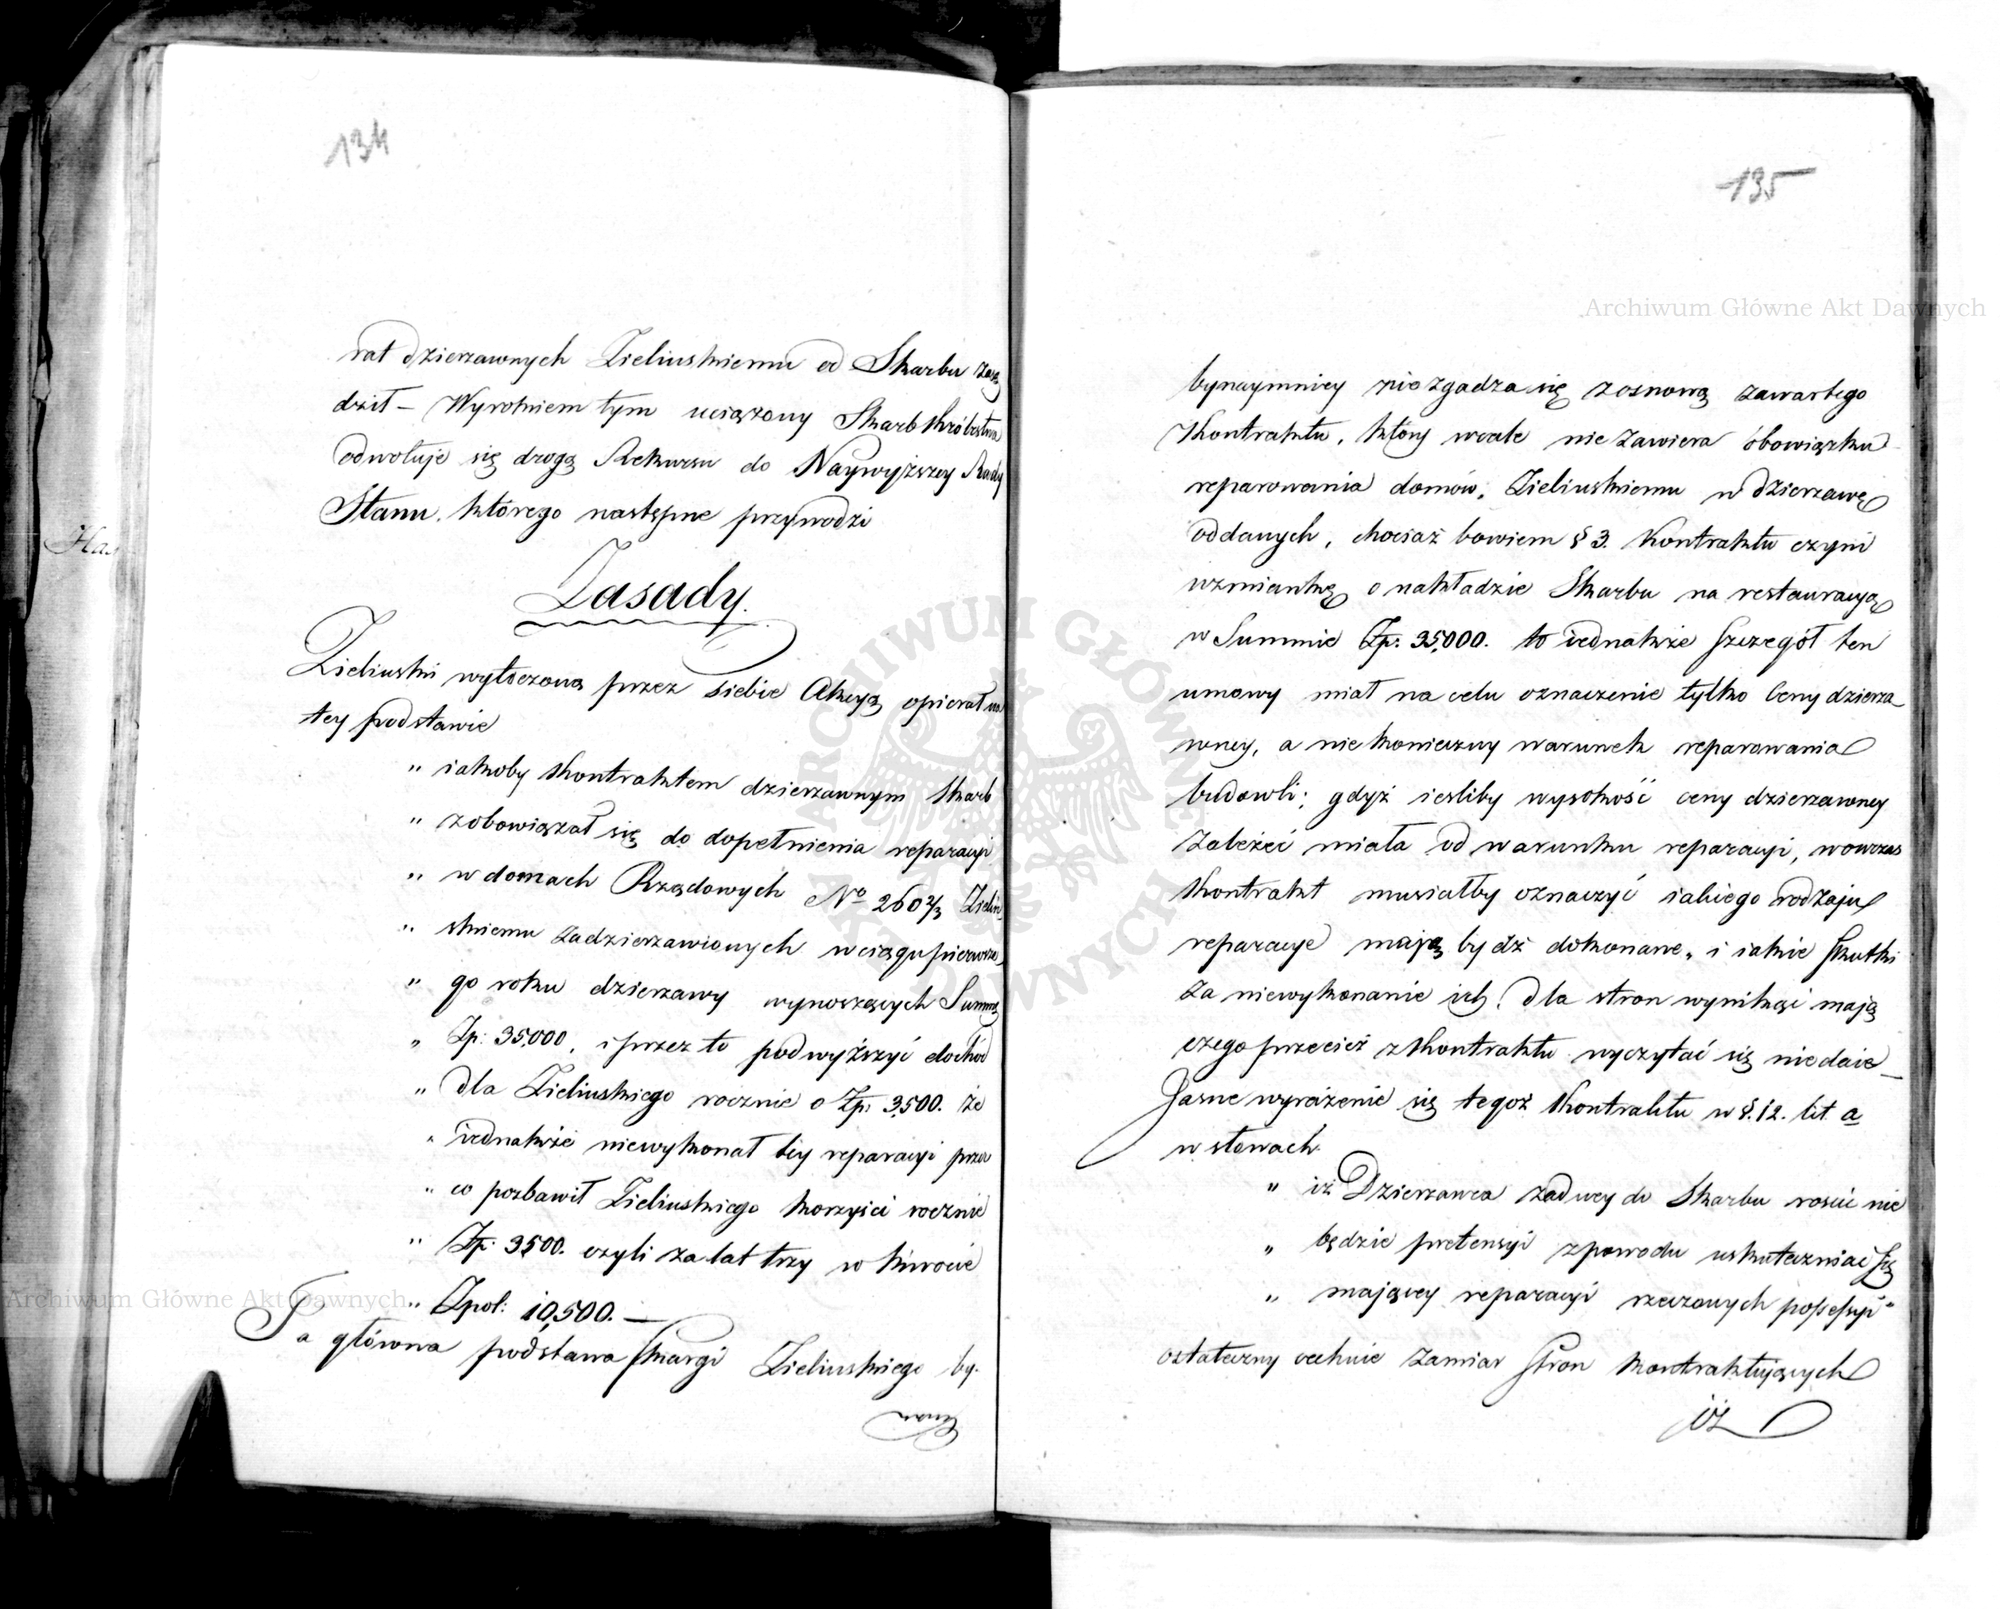 134
rat dzierzawnych Zielinskiemu od Skarbu zasą
dził – Wyrokiem tym uciążony Skarb Królestwa
odwołuje się drogą Rekursu do Naywyższey Rady
Stanu, którego następne przywodzi
Zasady.
Zielinski wytoczoną przez siebie Akcyą opierał na
tey podstawie
" iakoby Kontraktem dzierzawnym Skarb
" zobowiązał się do dopełnienia reparacyi
" w domach Rządowych No 260 2/3 Zielin
" skiemu zadzierzawionych w ciągu pierwsze
" go roku dzierzawy wynoszących Summę
" Zp: 35,000, i przez to podwyższyć dochód
" dla Zielinskiego rocznie o Zp: 3,500. że
" iednakże niewykonał tey reparacyi przez
" co pozbawił Zielinskiego korzyści rocznie
" Zp: 3500. czyli za lat trzy w kwocie
" Zpol: 10,500. —
Ta główna podstawa skargi Zielinskiego by-
135
bynaymniey nie zgadza się z osnową zawartego
Kontraktu, który wcale nie zawiera obowiązku
reparowania domów, Zielinskiemu w dzierzawę
oddanych, chociaż bowiem § 3. Kontraktu czyni
wzmiankę o nakładzie Skarbu na restauracyą
w Summie Zp: 35,000. to iednakże szczegół ten
umowy miał na celu oznaczenie tylko Ceny dzierza-
wney, a nie konieczny warunek reparowania
budowli; gdyż iesliby wysokość ceny dzierzawney
zależeć miała od warunku reparacyi, wowczas
Kontrakt musiałby oznaczyć iakiego rodzaju
reparacye mają bydź dokonane, i iakie skutki
za niewykonanie ich, dla stron wynikać mają
czego przecież z Kontraktu wyczytać się niedaie –
Jasne wyrażenie się tegoż Kontraktu w §. 12. lit. a
w słowach
" iż Dzierzawca żadney do Skarbu rościć nie
" będzie pretensyi z powodu uskuteczniać się
" maiącey reparacyi rzeczonych possessyi"
ostateczny cechuie zamiar stron kontraktuiących
iż
Archiwum Główne Akt Dawnych
Archiwum Główne Akt Dawnych
ARCHIWUM GŁÓWNE AKT DAWNYCH